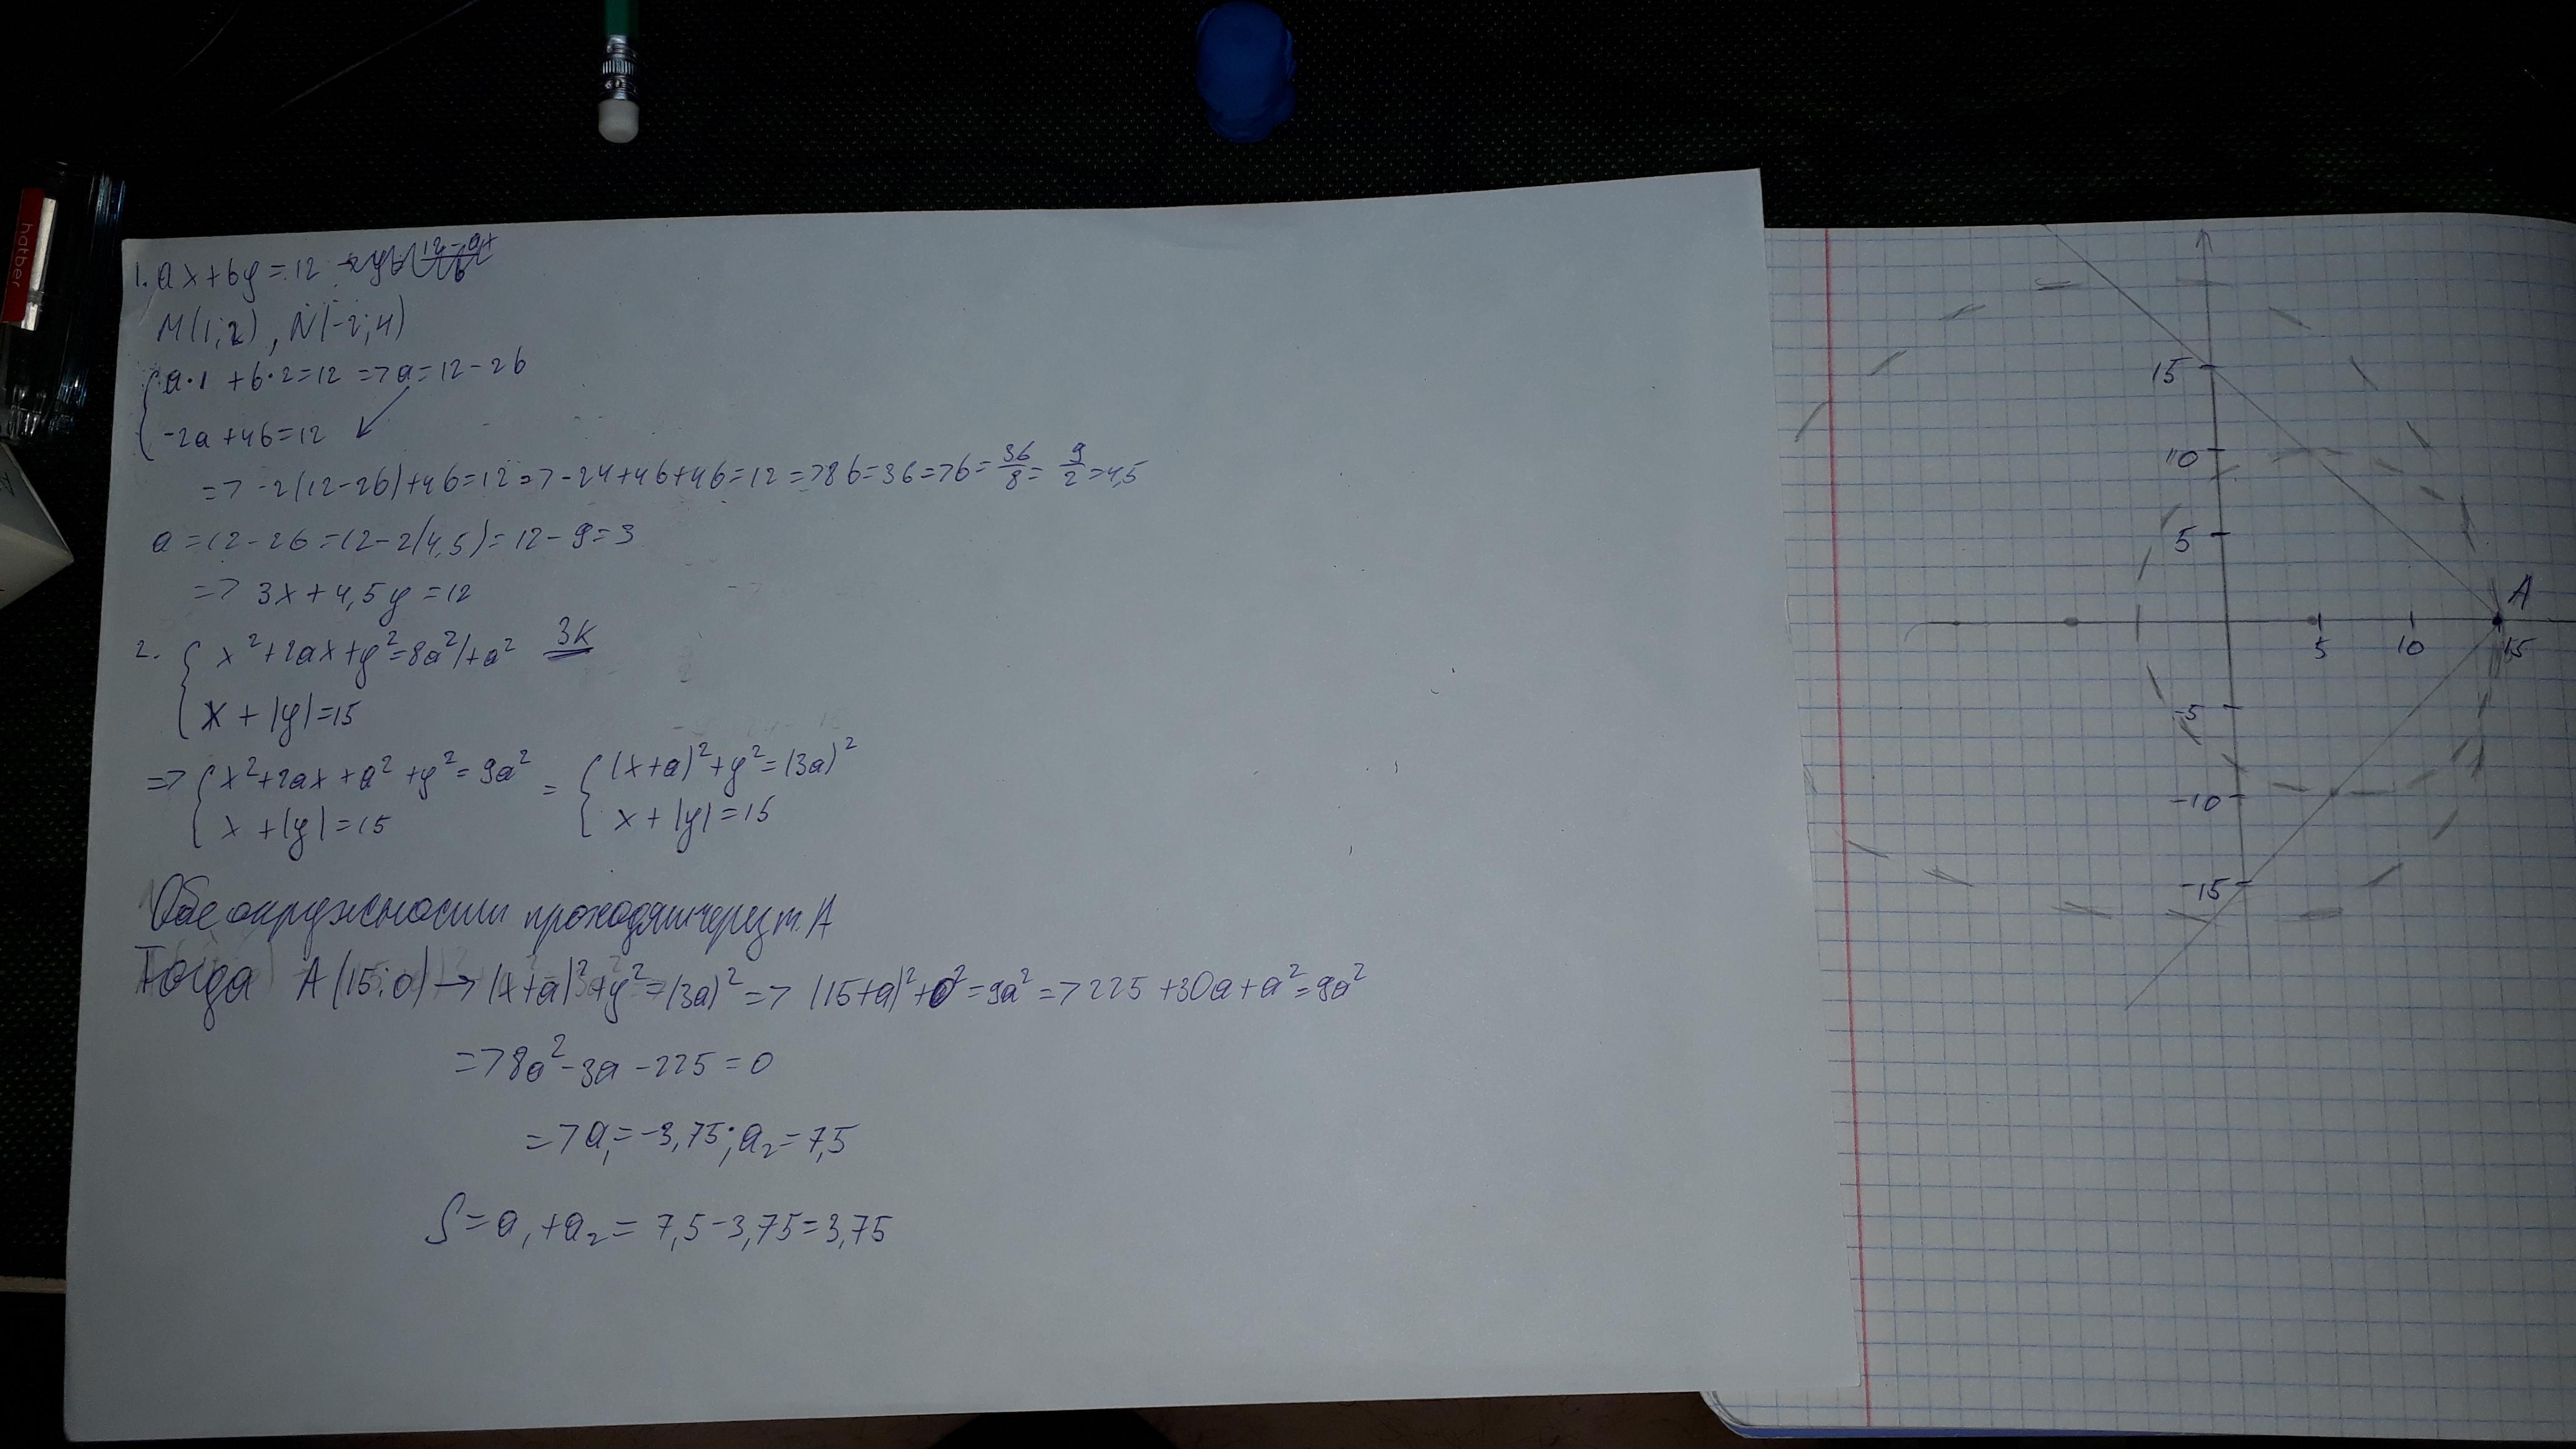 1. ax+by=12
M(1;2), N(-2;4)
a·1+b·2=12 => a=12-2b
-2a+4b=12
=> -2(12-2b)+4b=12 => -24+4b+4b=12 => 8b=36 => b=36/8=9/2=4,5
a=12-2b=12-2(4,5)=12-9=3
=> 3x+4,5y=12
2. x²+2ax+y²=8a²/+a² 3K
x+|y|=15
=> x²+2ax+a²+y²=9a² = (x+a)²+y²=(3a)²
x+|y|=15 x+|y|=15
Обе окружности проходят через т. A
Тогда A(15;0) → (x+a)²+y²=(3a)² => (15+a)²+0²=9a² => 225+30a+a²=9a²
=> 8a²-3a-225=0
=> a₁=-3,75; a₂=7,5
S=a₁+a₂=7,5-3,75=3,75
15
10
5
A
5 10 15
-5
-10
-15
hatber